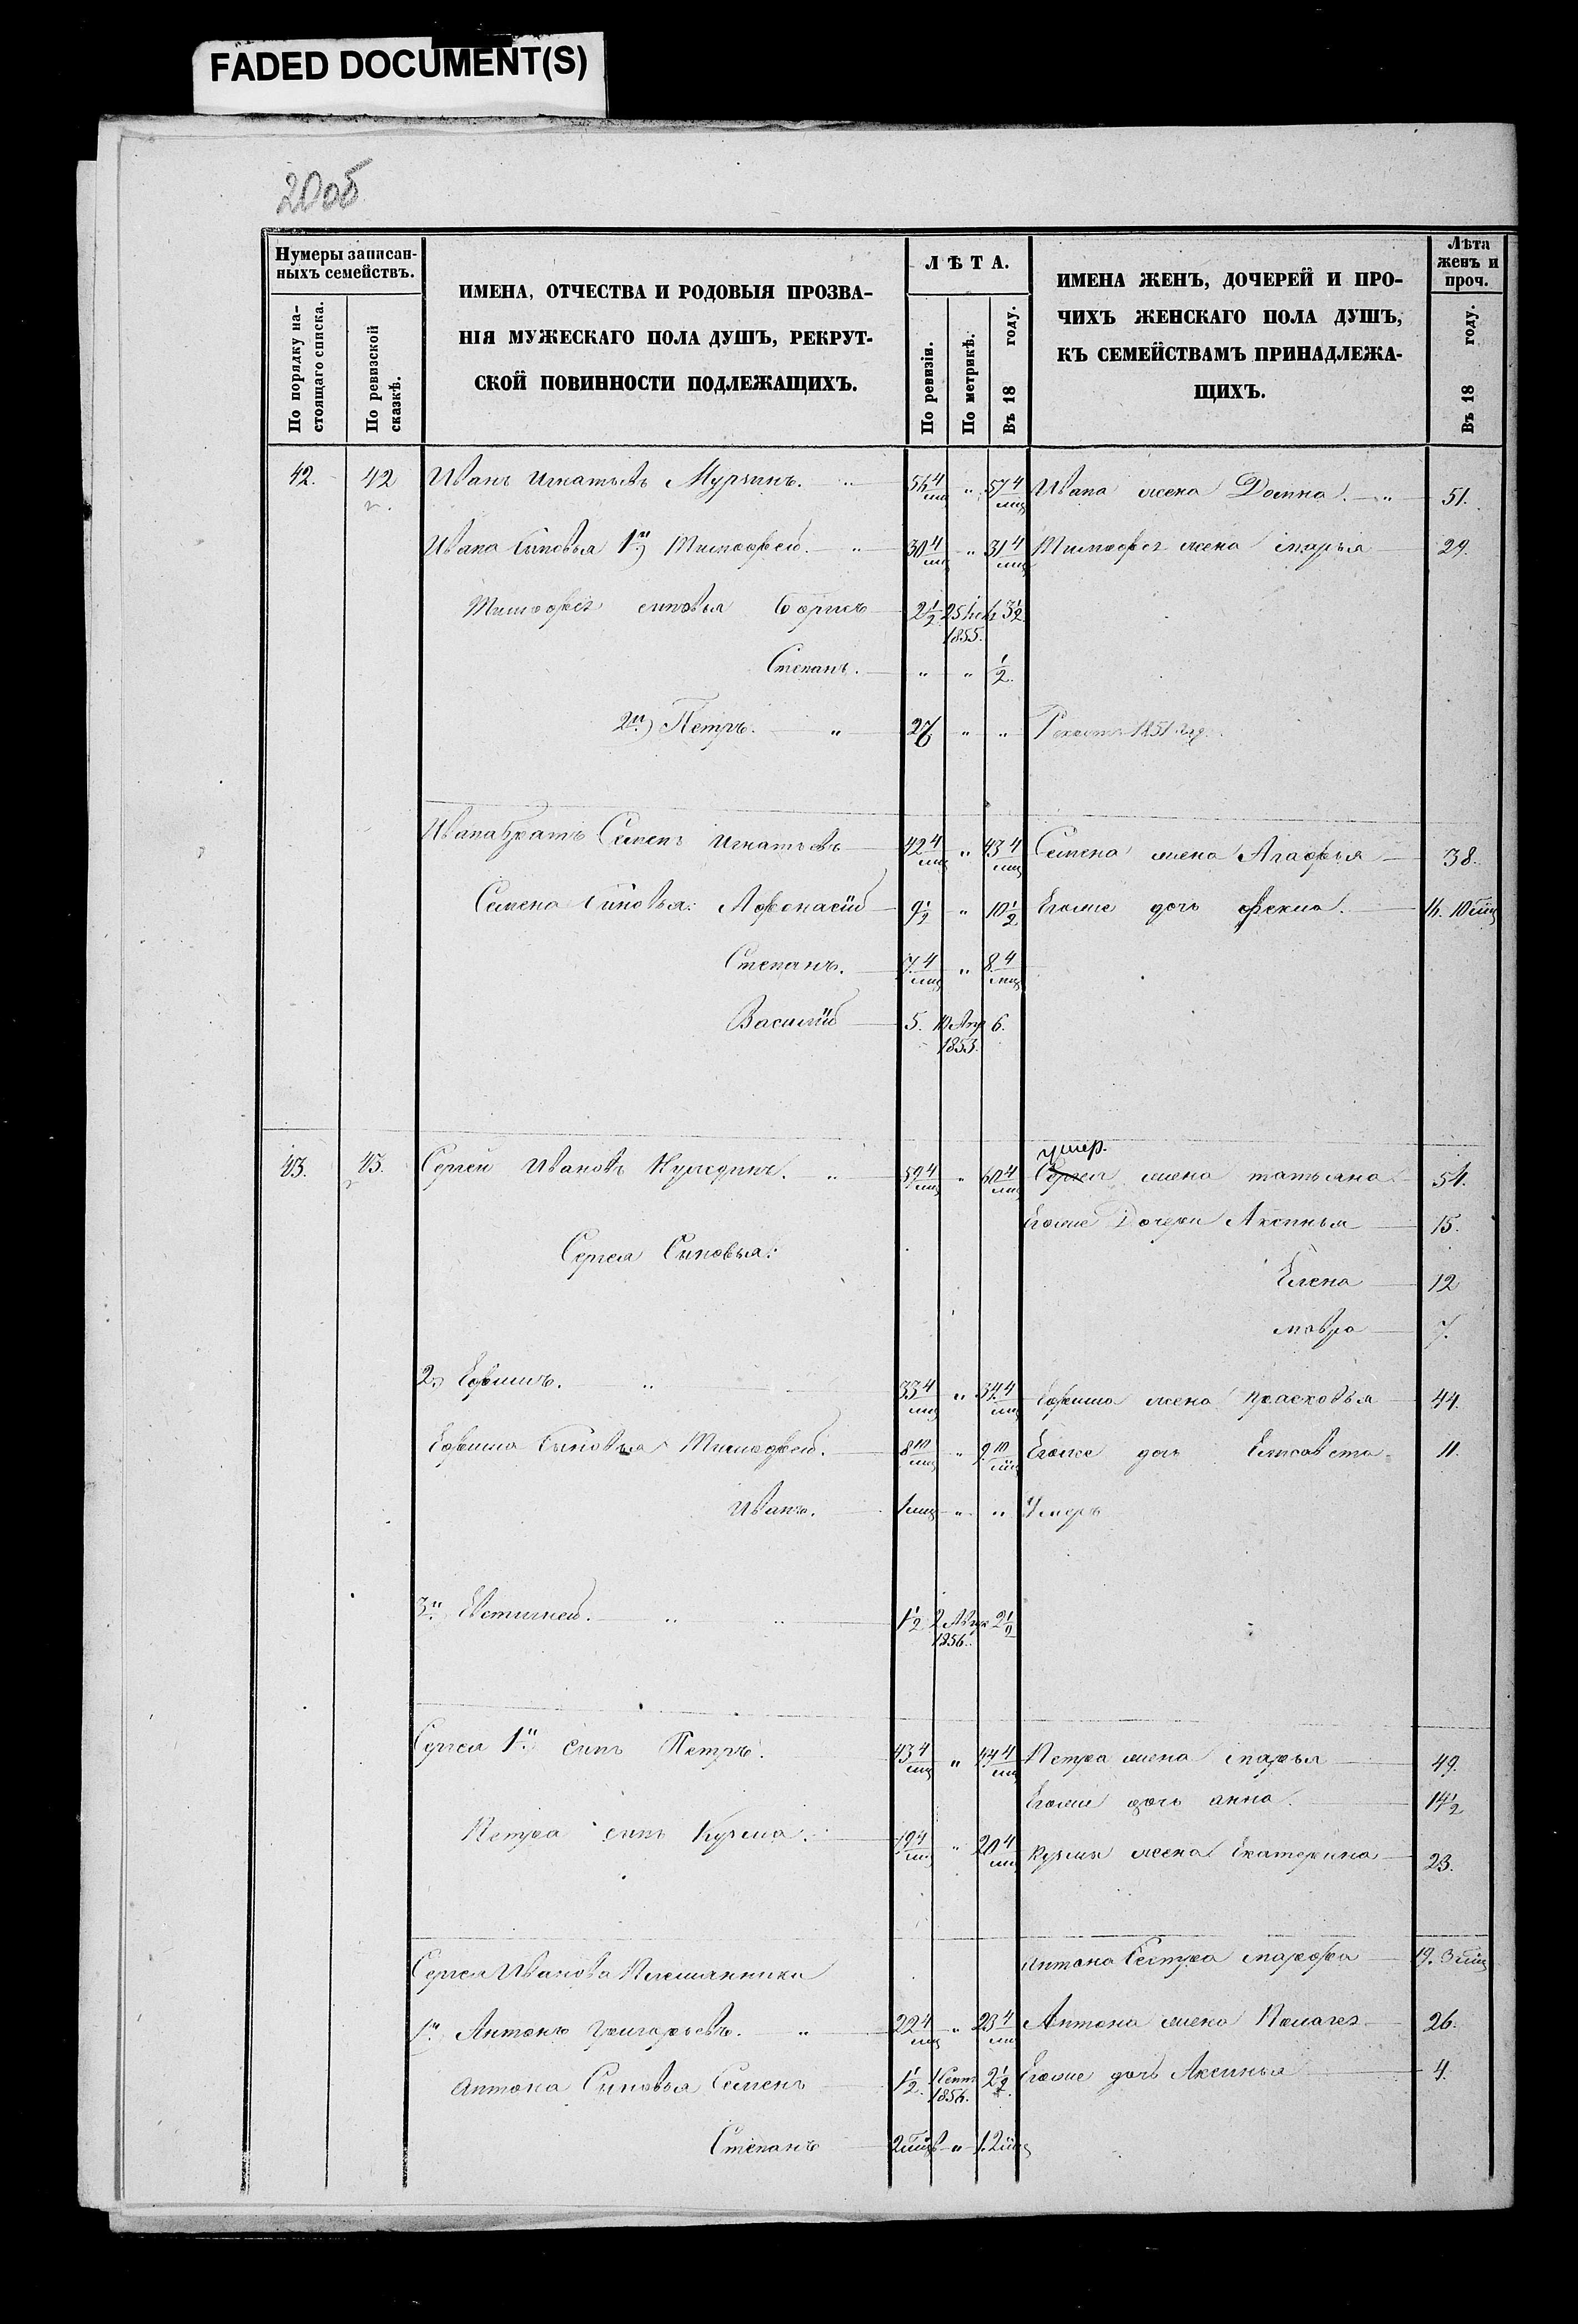 FADED DOCUMENT(S)
20об
Нумеры записан-
ныхъ семействъ.
По порядку на-
стоящаго списка.
По ревизской
сказкѣ.
ИМЕНА, ОТЧЕСТВА И РОДОВЫЯ ПРОЗВА-
НІЯ МУЖЕСКАГО ПОЛА ДУШЪ, РЕКРУТ-
СКОЙ ПОВИННОСТИ ПОДЛЕЖАЩИХЪ.
ЛѢТА.
По ревизіи.
По метрикѣ.
Въ 18 году.
ИМЕНА ЖЕНЪ, ДОЧЕРЕЙ И ПРО-
ЧИХЪ ЖЕНСКАГО ПОЛА ДУШЪ,
КЪ СЕМЕЙСТВАМЪ ПРИНАДЛЕЖА-
ЩИХЪ.
Лѣта
женъ и
проч.
Въ 18 году.
42. 42 Иванъ Игнатьевъ Мурзинъ. " 56 4/мц " 57 4/мц Ивана жена Домна. " 51.
Ивана сыновья 1й) Тимофей. " 30 4/мц " 31 4/мц Тимофея жена марья 29.
Тимофея сыновья Борисъ 2 1/2 25 1855. 3 1/2
Степанъ. " " 1/2.
2й) Петръ. " 27 " " 1851
Ивана братъ Семенъ Игнатьевъ 42 4/мц " 43 4/мц Семена жена Агафья 38.
Семена сыновья: Афонасій 9 1/2 " 10 1/2 Егоже дочь фекла. 16. 10 мц
Степанъ. 7. 4/мц " 8. 4/мц
Василій 5. 10 Апр 1853. 6.
43. 43. Сергей Ивановъ " 59 4/мц " 60 4/мц умер. Сергея жена татьяна 54.
Егоже Дочери Аксинья 15.
Сергея Сыновья:
Елена 12
мавра 7.
2) Ефимъ. " 33 4/мц " 34. 4/мц Ефима жена Прасковья 44.
Ефима сыновья Тимофей. 8 10/мц " 9. 10/мц Егоже дочь Елисавета 11.
Иванъ. 1 мц " " Умеръ
3й. Евстигней. " " 1 1/2 2 1856. 2 1/2
Сергея 1й. сынъ Петръ. 43 4/мц " 44 4/мц Петра жена марья 49.
Егоже дочь анна. 14 1/2
Петра сынъ Кузма. 19 4/мц " 20 4/мц Кузмы жена Екатерина 23.
Сергея Иванова Племянники Антона Сестра марфа 19. 3 мц
1й. Антонъ Григорьевъ. " 22 4/мц " 23 4/мц Антона жена Пелагея 26.
Антона Сыновья Семенъ 1 1/2. 1 Сент 1856. 2 1/2. Егоже дочь Аксинья 4.
Степанъ 2 мц " 1. 2 мц